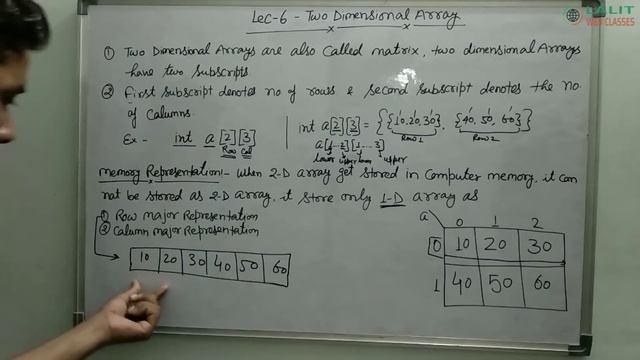 Lec-6 - Two Dimensional Array
LALIT
WEB CLASSES
① Two Dimensional Arrays are also Called matrix, two dimensional Arrays
have two subscripts
② First subscript denotes no of rows & second subscript denotes the no
of Columns.
Ex - int a[2][3]
Row Col
int a[2][3] = {{10,20,30}, {40, 50, 60}}
Row 1 Row 2
a[1...2][1....3]
lower upper lower upper
memory Representation:- When 2-D array get stored in Computer memory, it can
not be stored as 2-D array, it store only 1-D array as
① Row major Representation
② Column major Representation
10 20 30 40 50 60
a 0 1 2
0 10 20 30
1 40 50 60